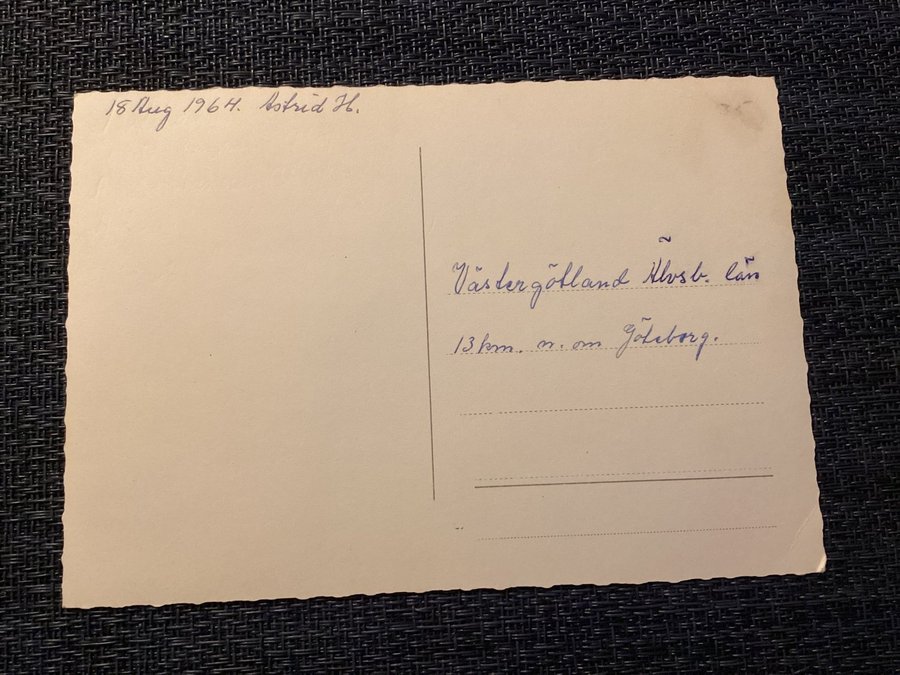 18 Aug 1964. Astrid H.
Västergötland Älvsb. län
13 km. n. om Göteborg.